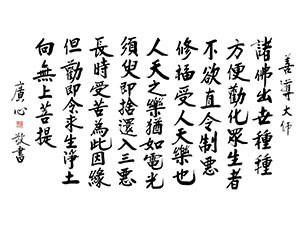 善導大師
諸佛出世種種
方便勸化眾生者
不欲直令制惡
修福受人天樂也
人天之樂猶如電光
須臾即捨還入三惡
長時受苦為此因緣
但勸即令求生淨土
向無上菩提
廣心敬書